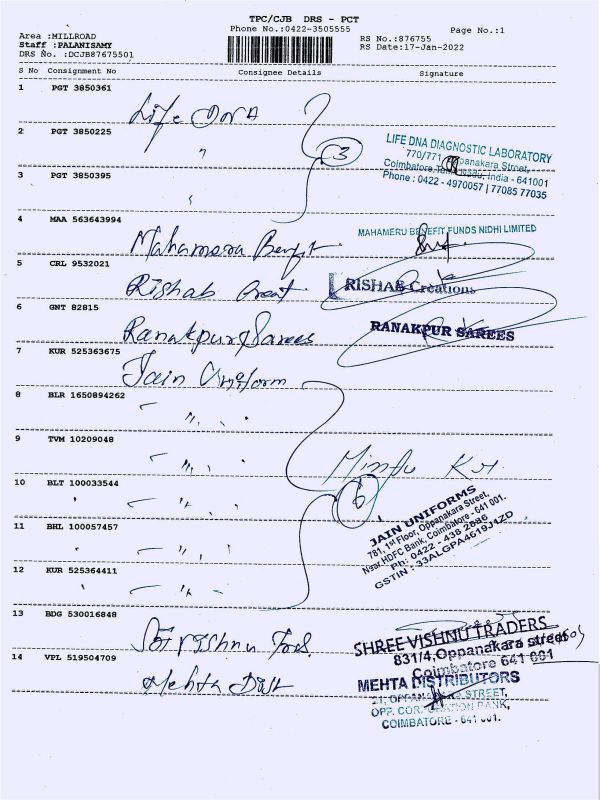 TPC/CJB DRS - PCT
Phone No.:0422-3505555
Page No.:1
Area :MILLROAD
Staff :PALANISAMY
DRS No. :DCJB87675501
RS No.:876755
RS Date:17-Jan-2022
S No Consignment No Consignee Details Signature
1 PGT 3850361
Life DNA
2 PGT 3850225
"
3
LIFE DNA DIAGNOSTIC LABORATORY
770/771, Oppanakara Street,
Coimbatore, Tamilnadu, India - 641001
Phone : 0422 - 4970057 | 77085 77035
3 PGT 3850395
"
4 MAA 563643994
MAHAMERU BENEFIT FUNDS NIDHI LIMITED
Mahameru Benefit
5 CRL 9532021
Rishab Creat
RISHAB Creations
6 GNT 82815
Ranakpur Sarees
RANAKPUR SAREES
7 KUR 525363675
Jain Uniform
8 BLR 1650894262
- " -
9 TVM 10209048
- " -
10 BLT 100033544
- " -
6
11 BHL 100057457
- " -
JAIN UNIFORMS
781, 1st Floor, Oppanakara Street,
Near HDFC Bank, Coimbatore - 641 001.
Ph: 0422 - 438 2886
GSTIN : 33ALGPA4619J1ZD
12 KUR 525364411
- " -
13 BDG 530016848
Sri Vishnu Trds
SHREE VISHNU TRADERS
831/4, Oppanakara street
Coimbatore 641 001
14 VPL 519504709
Mehta Dist
MEHTA DISTRIBUTORS
21, OPPANAKARA STREET,
OPP. CORPORATION BANK,
COIMBATORE - 641 001.